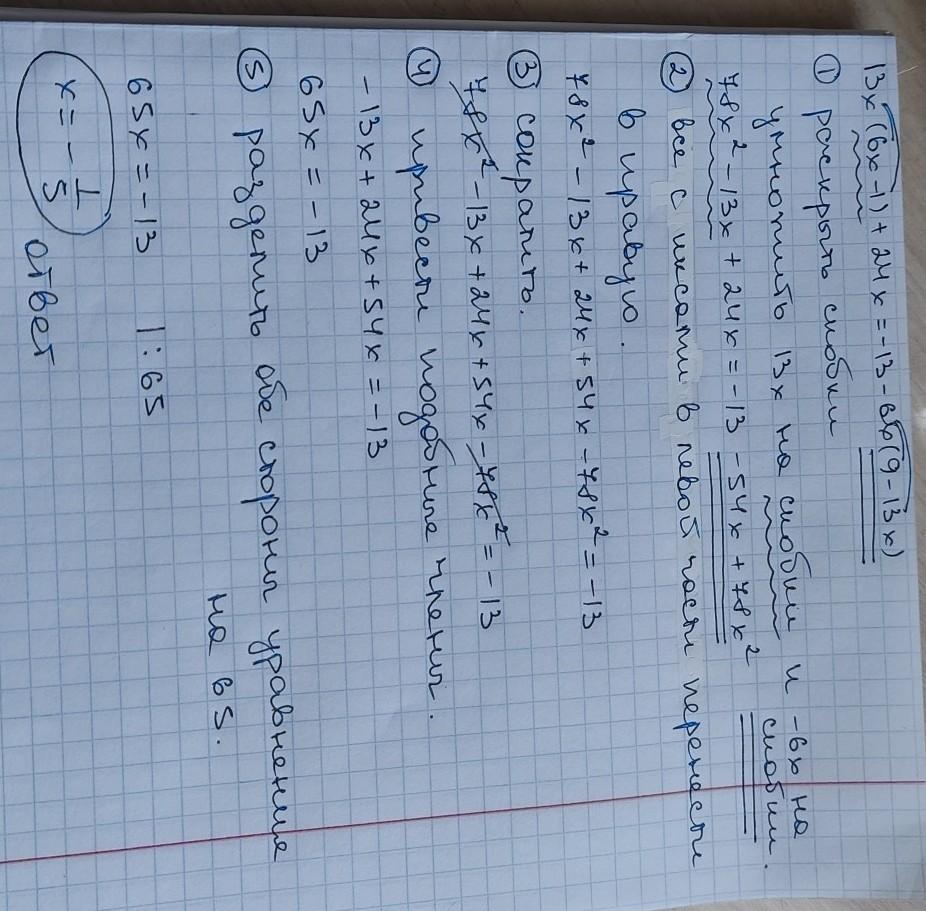 13x(6x-1)+24x=-13-6x(9-13x)
① раскрыть скобки
умножить 13x на скобки и -6x на
скобки.
78x²-13x+24x=-13-54x+78x²
② все с иксами в левой части перенести
в правую.
78x²-13x+24x+54x-78x²=-13
③ сократить.
78x²-13x+24x+54x-78x²=-13
④ привести подобные члены.
-13x+24x+54x=-13
65x=-13
⑤ разделить обе стороны уравнения
на 65.
65x=-13 |:65
x=-1/5
ответ